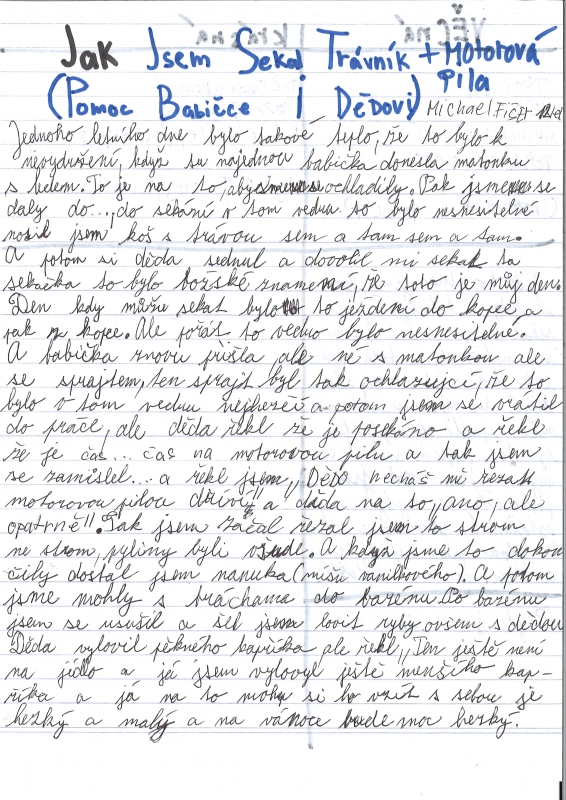 Jak Jsem Sekal Trávník + Motorová
Pila
(Pomoc Babičce i Dědovi) Michael
Jednoho letního dne bylo takové teplo, že to bylo k
nevydržení, když tu najednou babička donesla matonku
s ledem. To je na to, aby se ochladily. Pak jsme se
daly do..., do sekání v tom vedru to bylo nesnesitelné
nosil jsem koš s trávou sem a tam sem a tam.
A potom si děda sednul a dovolil mi sekat ta
sekačka to bylo božské znamení, že toto je můj den.
Den kdy můžu sekat bylo to ježdení do kopce a
pak z kopce. Ale pořát to vedro bylo nesnesitelné.
A babička znovu přišla ale né s matonkou ale
se sprajtem, ten sprajt byl tak ochlazující, že to
bylo v tom vedru nejhezčí a potom jsem se vrátil
do práce, ale děda řekl že je posekáno a řekl
že je čas... čas na motorovou pilu a tak jsem
se zamislel... a řekl jsem „Dědo necháš mě řezat
motorovou pilou dříví" a děda na to „ano, ale
opatrně". Tak jsem začal řezal jsem to strom
ne strom, pyliny byli všude. A když jsme to dokon
čily dostal jsem nanuka (míšu vanilkového). A potom
jsme mohly s bráchama do bazénu. Po bazénu
jsem se usušil a šel jsem lovit ryby ovšem s dědou
Děda vylovil pěkného kapříka ale řekl „Ten ještě není
na jídlo a já jsem vylovyl ještě menšího kap-
říka a já na to mohu si ho vzít s sebou je
hezký a malý a na vánoce bude moc hezký.